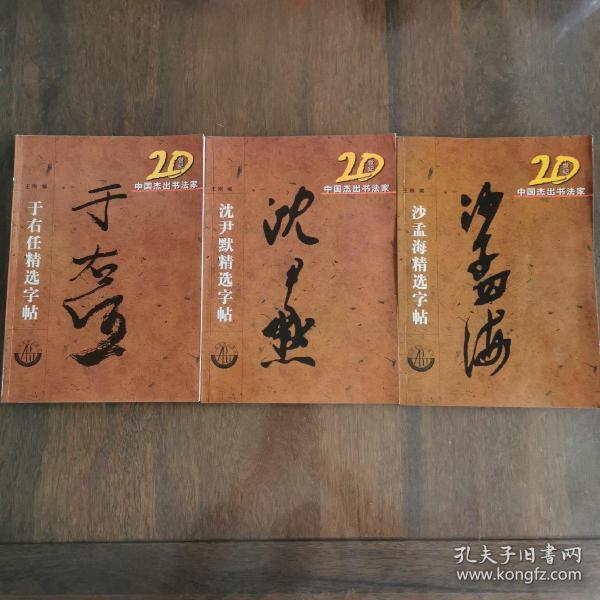 20世纪
中国杰出书法家
王刚 编
于右任精选字帖
于右任
20世纪
中国杰出书法家
王刚 编
沈尹默精选字帖
沈尹默
20世纪
中国杰出书法家
王刚 编
沙孟海精选字帖
沙孟海
孔夫子旧书网
www.kongfz.com